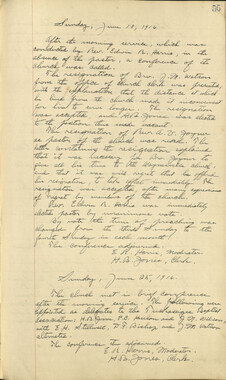 Sunday, June 18, 1916.
After the morning service, which was
conducted by Rev. Eldon R. Harris, in the
absence of the pastor, a conference of the
church was called.
The resignation of Bro. J. W. Watson
from the office of church clerk was presented,
with the explanation that the distance at which
he lived from the church made it inconvenient
for him to serve longer. The resignation
was accepted and H. B. Jones was elected
to the position thus made vacant.
The resignation of Rev. A. V. Joyner
as pastor of the church was read. The
letter containing the resignation explained
that it was necessary for Bro. Joyner to
give all his time to the
and that it was only right that he offered
his resignation to his other
resignation was accepted, after many expressions
of regret by members of the church.
Rev. Eldon R. Harris was immediately
elected pastor by unanimous vote.
By vote the time of preaching was
changed from the third Sunday to the
fourth Sunday in each month.
The conference adjourned.
E. R. Harris, Moderator.
H. B. Jones, Clerk.
Sunday, June 25, 1916.
The church met in brief conference
after the morning service. The following were
appointed as delegates to the Baptist
Association: H. B. Jones, P. D. and J. W. Watson
with E. H. D. F. Bishop and
alternates.
The conference then adjourned.
E. R. Harris, Moderator.
H. B. Jones, Clerk.